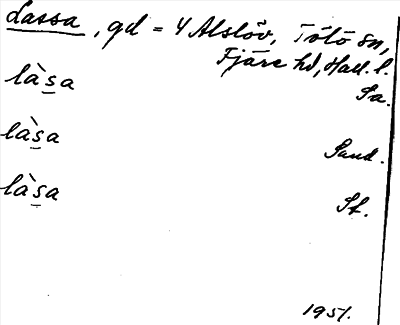 Lassa, gd = 4 Alslöv, Tölö sn,
Fjäre hd, Hall. l.
là̱sa Sa.
là̱sa Sand.
là̱sa St.
1951.